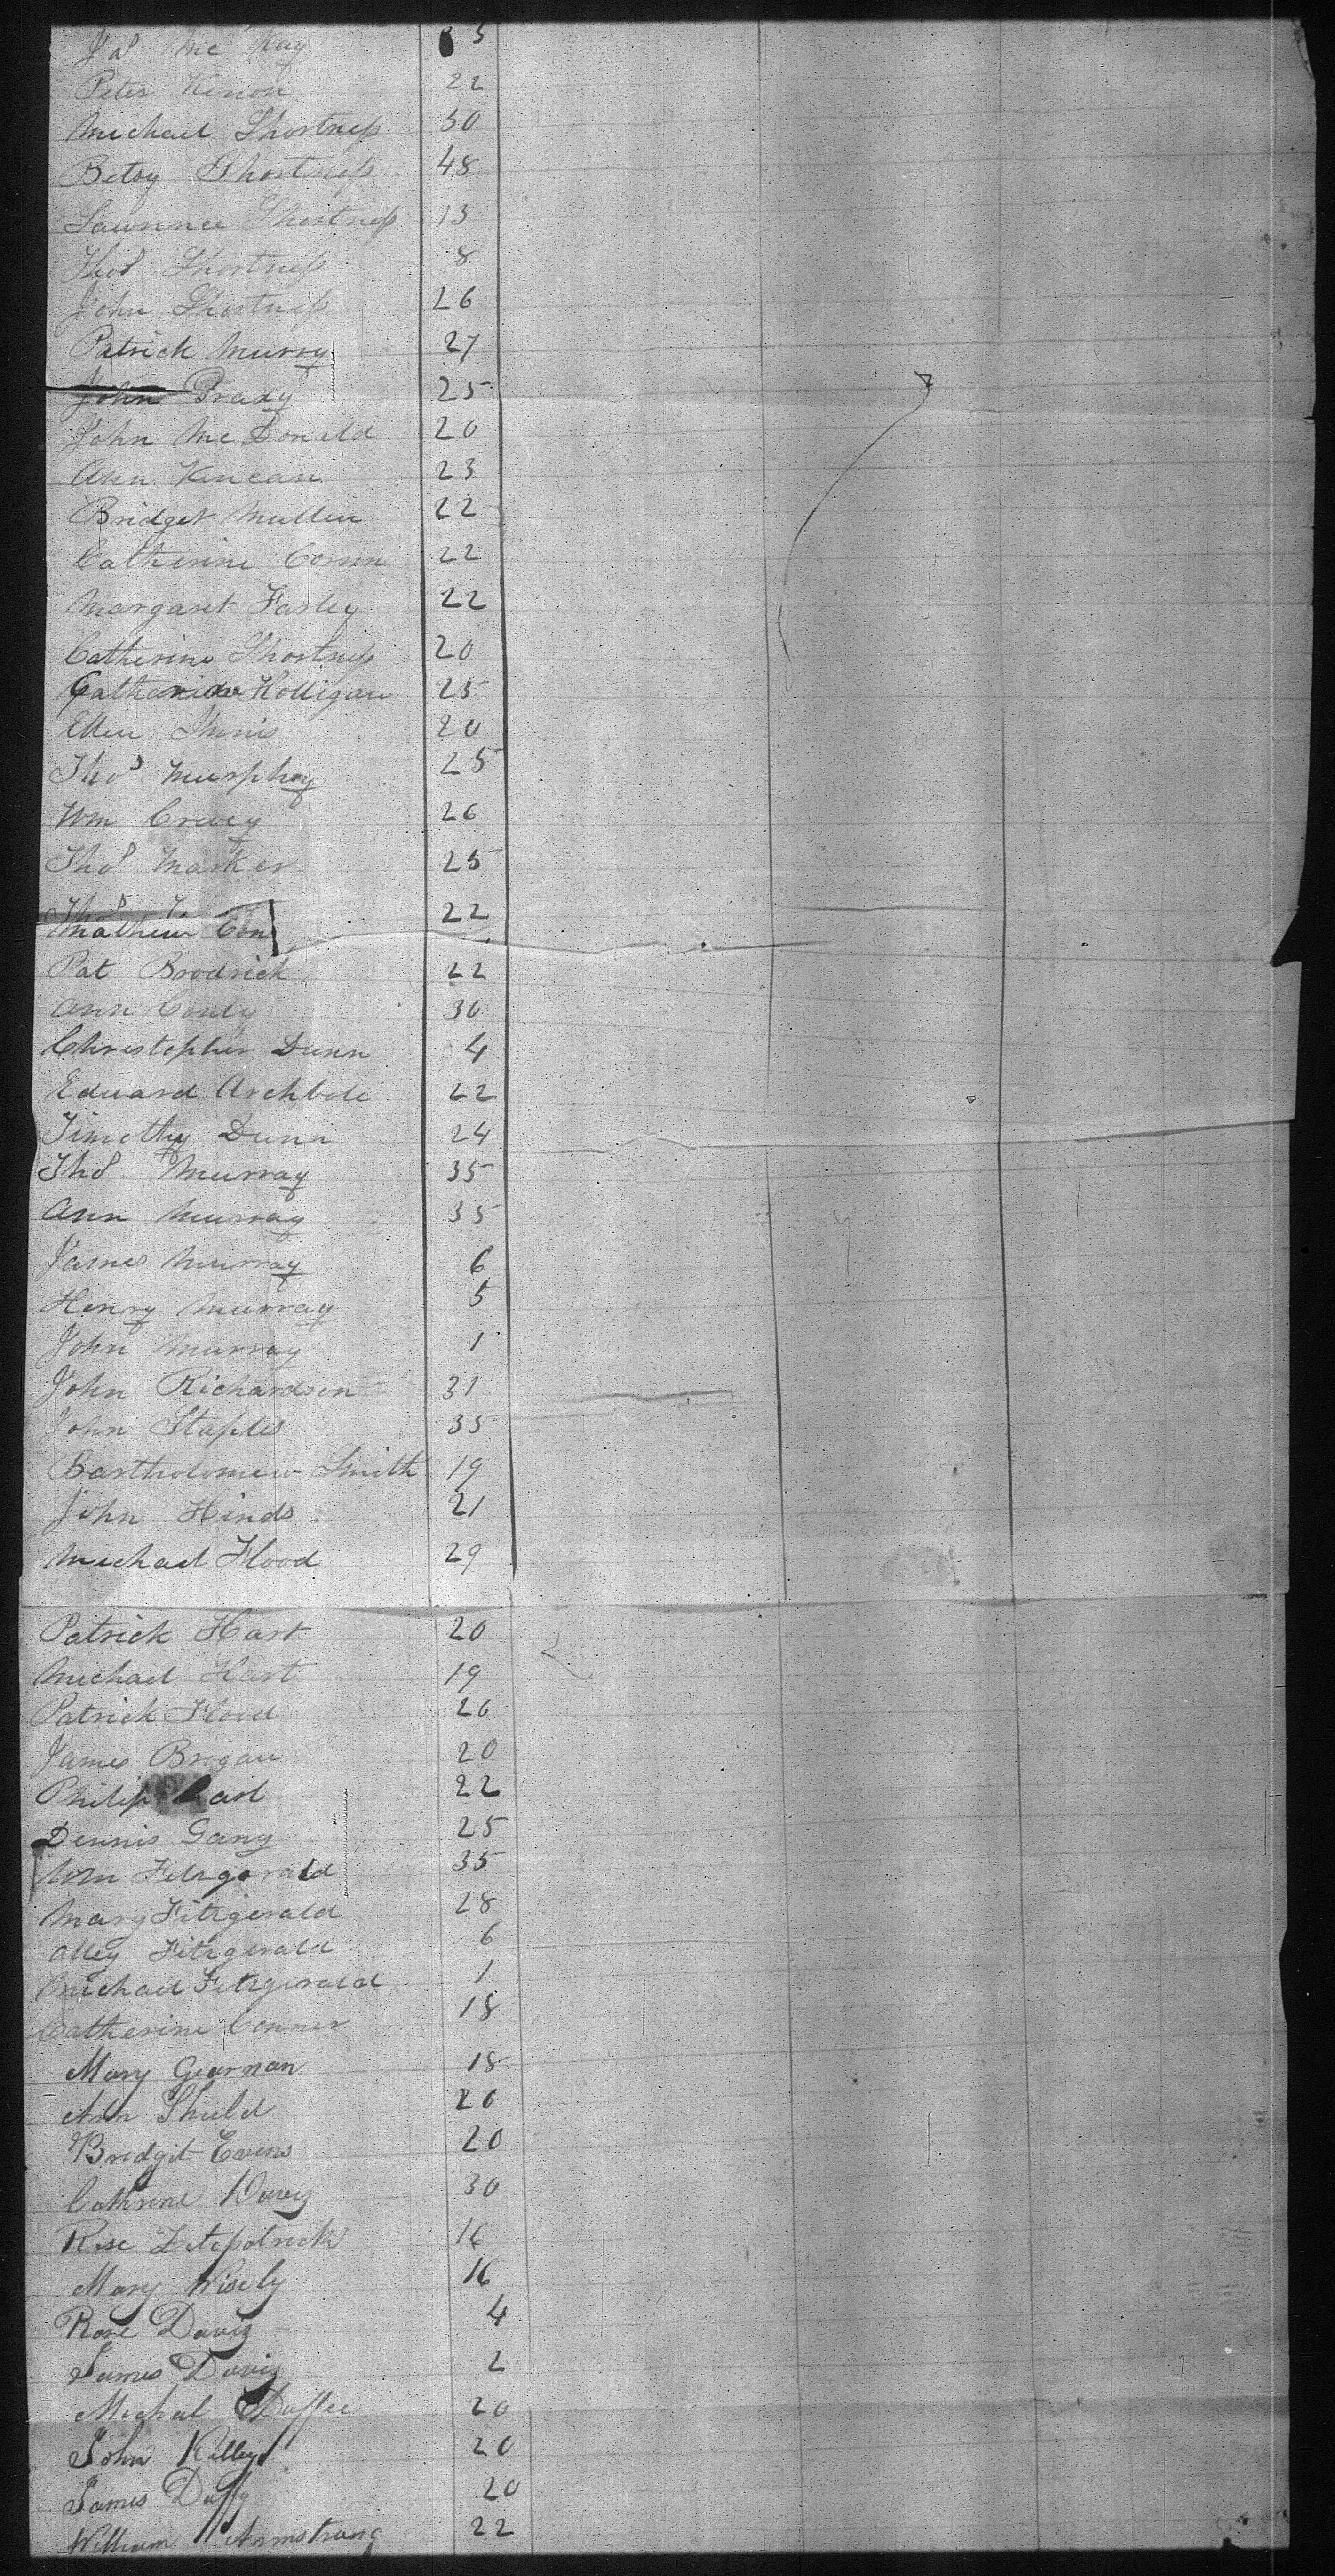 Jas Mc Kay 5
Peter Kenon 22
Michael Shortness 50
Betsy Shortness 48
Laurence Shortness 13
Thos Shortness 8
John Shortness 26
Patrick Murry 27
John Brady 25
John McDonald 20
Ann Kincan 23
Bridget Mullen 22
Catherine 22
Margaret Farley 22
Catherine Shortness 20
Catherine Holligan 25
Ellen 20
Thos Murphey 25
Wm 26
Thos Marker 25
Thos
Mathew Con 22
Pat Brodrick 22
Ann Conly 30
Christopher Dunn 4
Edward Archbole 22
Timothy Dunn 24
Thos Murray 35
Ann Murray 35
James Murray 6
Henry Murray 5
John Murray 1
John Richardson 31
John Staples 35
Bartholomew Smith 19
John Hinds 21
Michael Flood 29
Patrick Hart 20
Michael Hart 19
Patrick Flood 20
James Brogan 20
Philip 22
Dennis Gany 25
Wm Fitzgerald 35
Mary Fitzgerald 28
Alley Fitzgerald 6
Michael Fitzgerald 1
Catherine Conner 18
Mary Gearnan 18
Ann Shield 20
Bridgit Evens 20
Cathrine Daviz 30
Rose Fitzpatrick 16
Mary Wisely 16
Rose Daviz 4
James Daviz 2
Michal Duffee 20
John Killey 20
James Duffy 20
William Armstrong 22